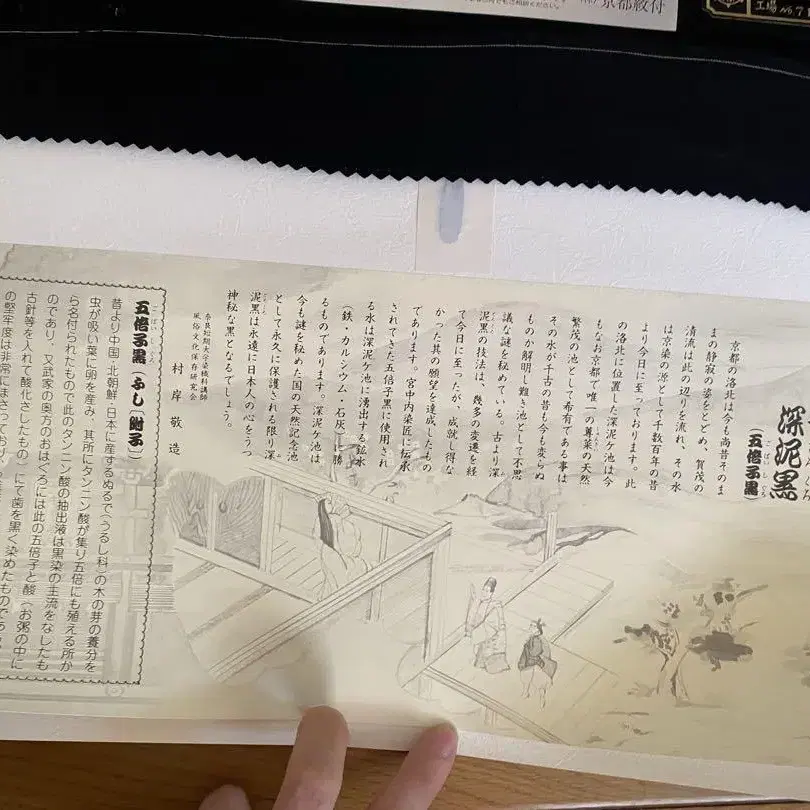 京都紋付
工場 No.7
深泥黒
(五倍子黒)
京都の洛北は今も尚昔そのま
まの静寂の姿をとどめ、賀茂の
清流は此の辺りを流れ、その水
は京染の源として千数百年の昔
より今日に至っております。此
の洛北に位置した深泥ケ池は今
もなお京都で唯一の蓴菜の天然
繁茂の池として希有である事は
その水が千古の昔も今も変らぬ
ものか解明し難き池として不思
議な謎を秘めている。古より深
泥黒の技法は、幾多の変遷を経
て今日に至ったが、成就し得な
かった其の願望を達成したもの
であります。宮中内染匠に伝承
されてきた五倍子黒に使用され
る水は深泥ケ池に湧出する鉱水
(鉄・カルシウム・石灰)に勝
るものであります。深泥ケ池は
今も謎を秘めた国の天然記念池
として永久に保護される限り深
泥黒は永遠に日本人の心をうつ
神秘な黒となるでしょう。
奈良短期大学染織科講師
風俗文化保存研究会
村岸敬造
五倍子黒 ふし〔附子〕
昔より中国・北朝鮮・日本に産するぬるで(うるし科)の木の芽の養分を
虫が吸い葉に卵を産み、其所にタンニン酸が集り五倍にも殖える所か
ら名付られたもので此のタンニン酸の抽出液は黒染の主流をなしたも
のであり、又武家の奥方のおはぐろには此の五倍子と酸(お粥の中に
古針等を入れて酸化さしたもの)にて歯を黒く染めたものであ
の堅牢度は非常にまさっており